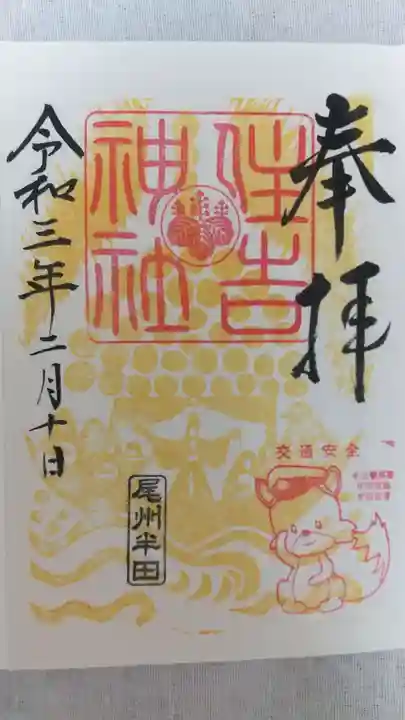 奉拝
住吉
神社
令和三年二月十日
尾州半田
交通安全